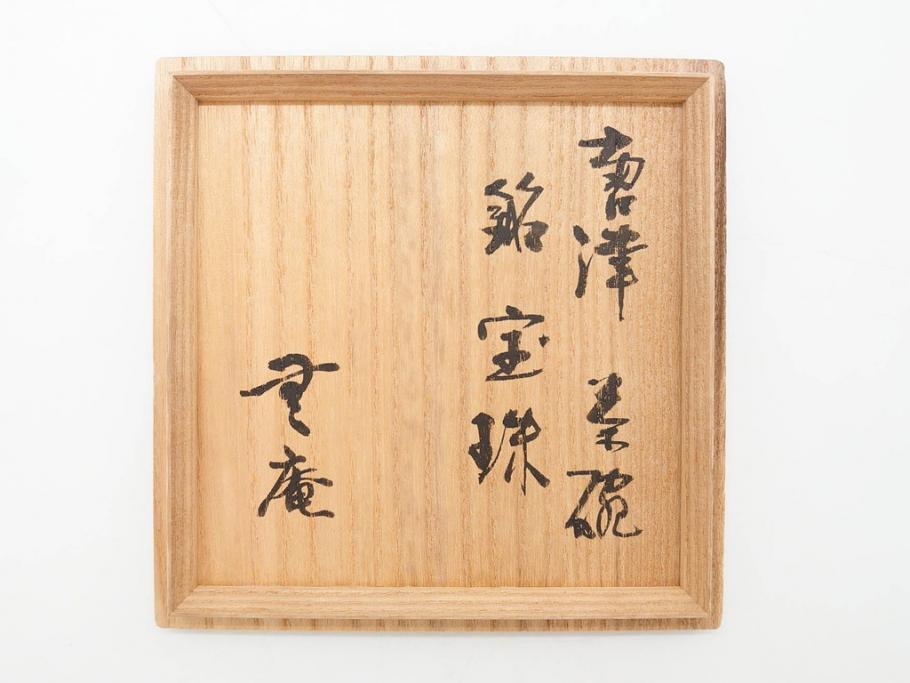 唐津 茶碗
銘 宝珠
寛庵